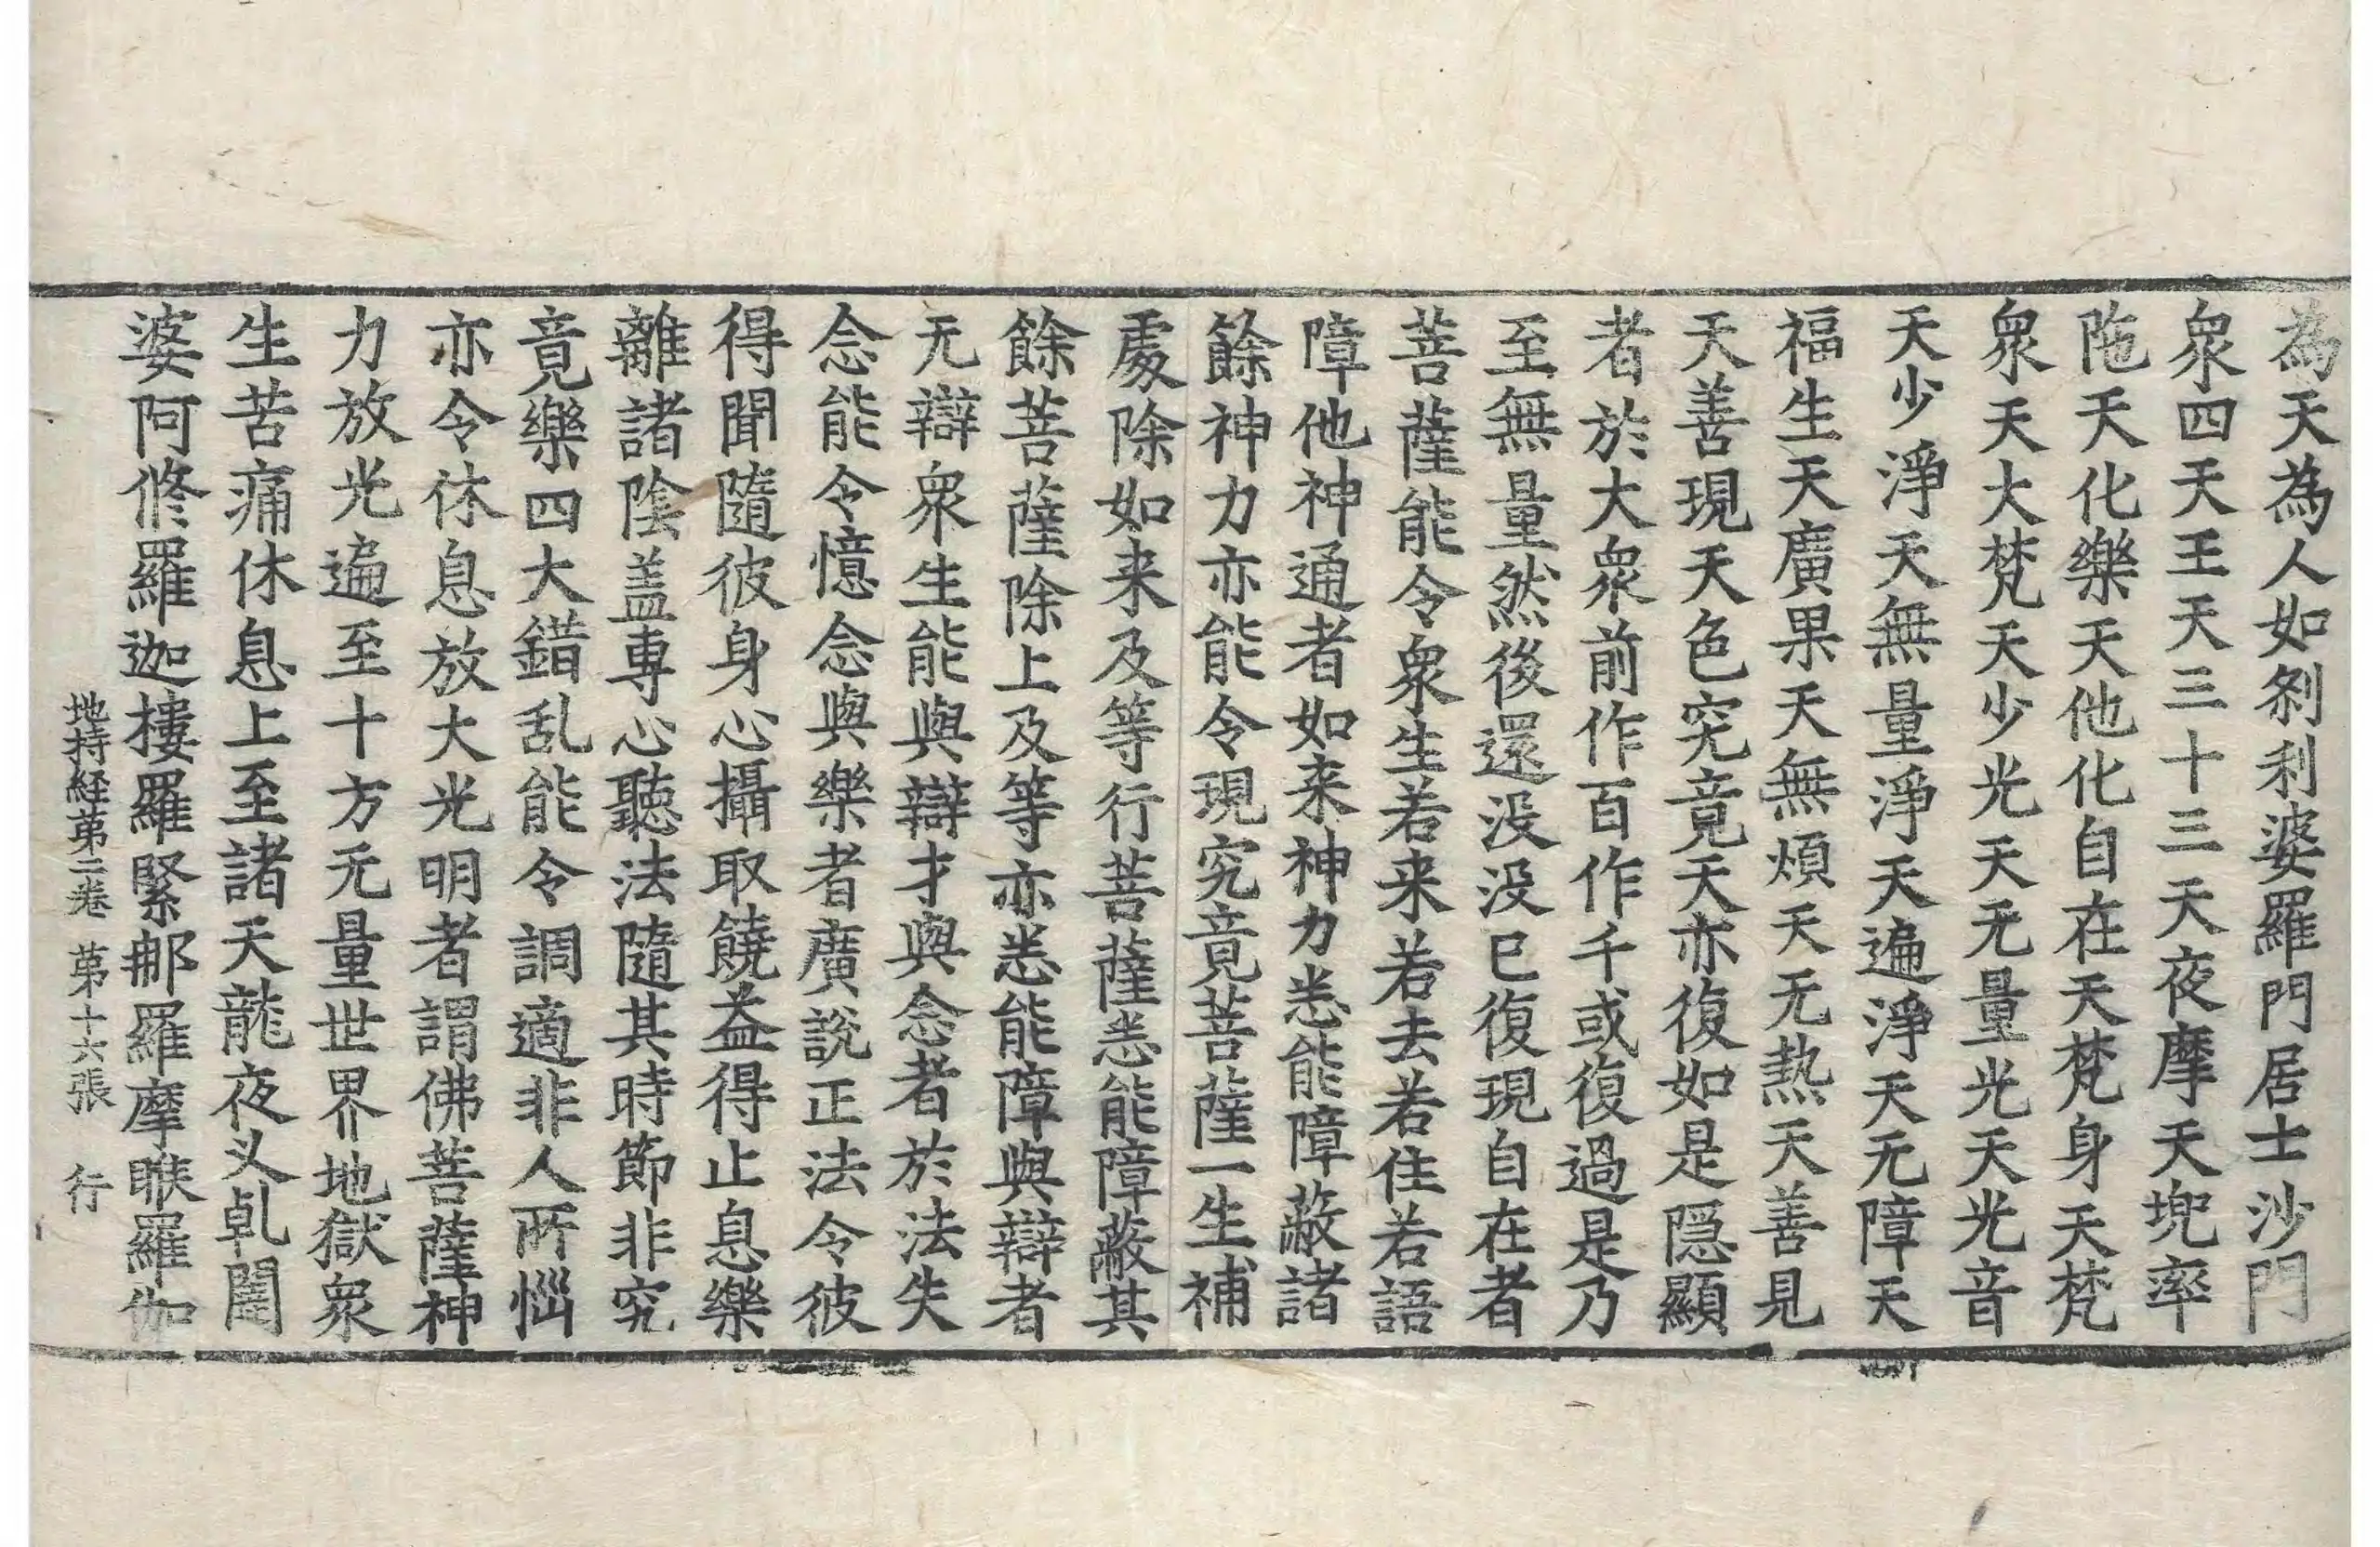 為天為人如刹利婆羅門居士沙門
衆四天王天三十三天夜摩天兜率
陁天化樂天他化自在天梵身天梵
衆天大梵天少光天无量光天光音
天少淨天無量淨天遍淨天无障天
福生天廣果天無煩天无热天善見
天善現天色究竟天亦復如是隠顯
者於大衆前作百作千或復過是乃
至無量然後還没没已復現自在者
菩薩能令衆生若来若去若住若語
障他神通者如来神力悉能障蔽諸
餘神力亦能令現究竟菩薩一生補
處除如来及等行菩薩悉能障蔽其
餘菩薩除上及等亦悉能障與辯者
无辯衆生能與辯才與念者於法失
念能令憶念與樂者廣說正法令彼
得聞隨彼身心攝取饒益得止息樂
離諸陰盖專心聽法隨其時節非究
竟樂四大錯乱能令調適非人所惱
亦令休息放大光明者謂佛菩薩神
力放光遍至十方无量世界地獄衆
生苦痛休息上至諸天龍夜叉乹闥
婆阿修羅迦樓羅緊那羅摩睺羅伽
地持経苐二卷 苐十六張 行